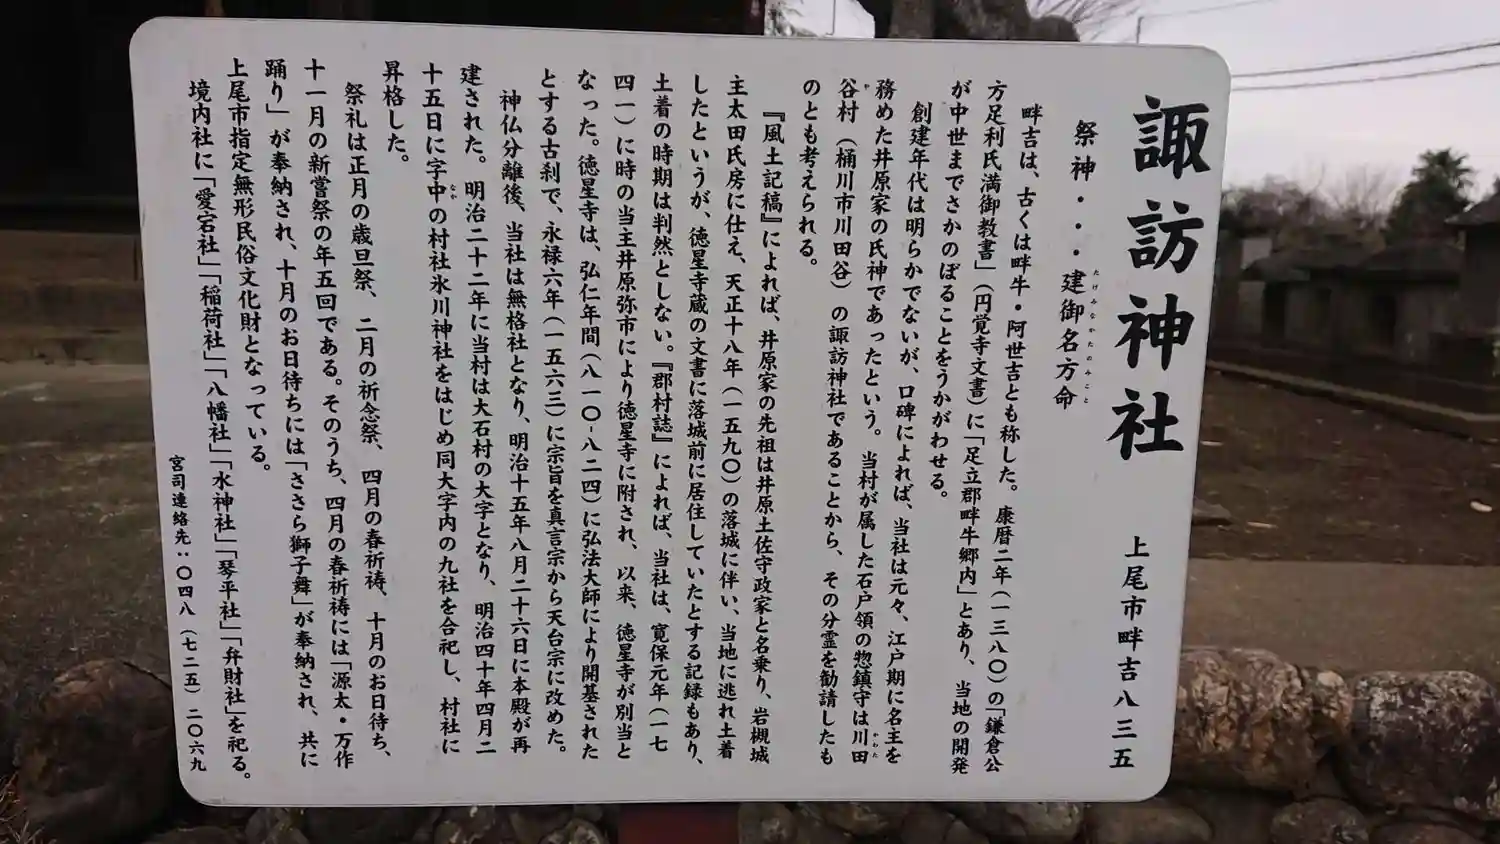 諏訪神社
上尾市畔吉八三五
祭神・・・建御名方命
たけみなかたのみこと
畔吉は、古くは畔牛・阿世吉とも称した。康暦二年（一三八〇）の「鎌倉公
方足利氏満御教書」（円覚寺文書）に「足立郡畔牛郷内」とあり、当地の開発
が中世までさかのぼることをうかがわせる。
創建年代は明らかでないが、口碑によれば、当社は元々、江戸期に名主を
務めた井原家の氏神であったという。当村が属した石戸領の惣鎮守は川田
かわた
谷村（桶川市川田谷）の諏訪神社であることから、その分霊を勧請したも
や
のとも考えられる。
『風土記稿』によれば、井原家の先祖は井原土佐守政家と名乗り、岩槻城
主太田氏房に仕え、天正十八年（一五九〇）の落城に伴い、当地に逃れ土着
したというが、徳星寺蔵の文書に落城前に居住していたとする記録もあり、
土着の時期は判然としない。『郡村誌』によれば、当社は、寛保元年（一七
四一）に時の当主井原弥市により徳星寺に附され、以来、徳星寺が別当と
なった。徳星寺は、弘仁年間（八一〇-八二四）に弘法大師により開基された
とする古刹で、永禄六年（一五六三）に宗旨を真言宗から天台宗に改めた。
神仏分離後、当社は無格社となり、明治十五年八月二十六日に本殿が再
建された。明治二十二年に当村は大石村の大字となり、明治四十年四月二
十五日に字中の村社氷川神社をはじめ同大字内の九社を合祀し、村社に
なや
昇格した。
祭礼は正月の歳旦祭、二月の祈念祭、四月の春祈祷、十月のお日待ち、
十一月の新嘗祭の年五回である。そのうち、四月の春祈祷には「源太・万作
踊り」が奉納され、十月のお日待ちには「ささら獅子舞」が奉納され、共に
上尾市指定無形民俗文化財となっている。
境内社に「愛宕社」「稲荷社」「八幡社」「水神社」「琴平社」「弁財社」を祀る。
宮司連絡先：〇四八（七二五）二〇六九